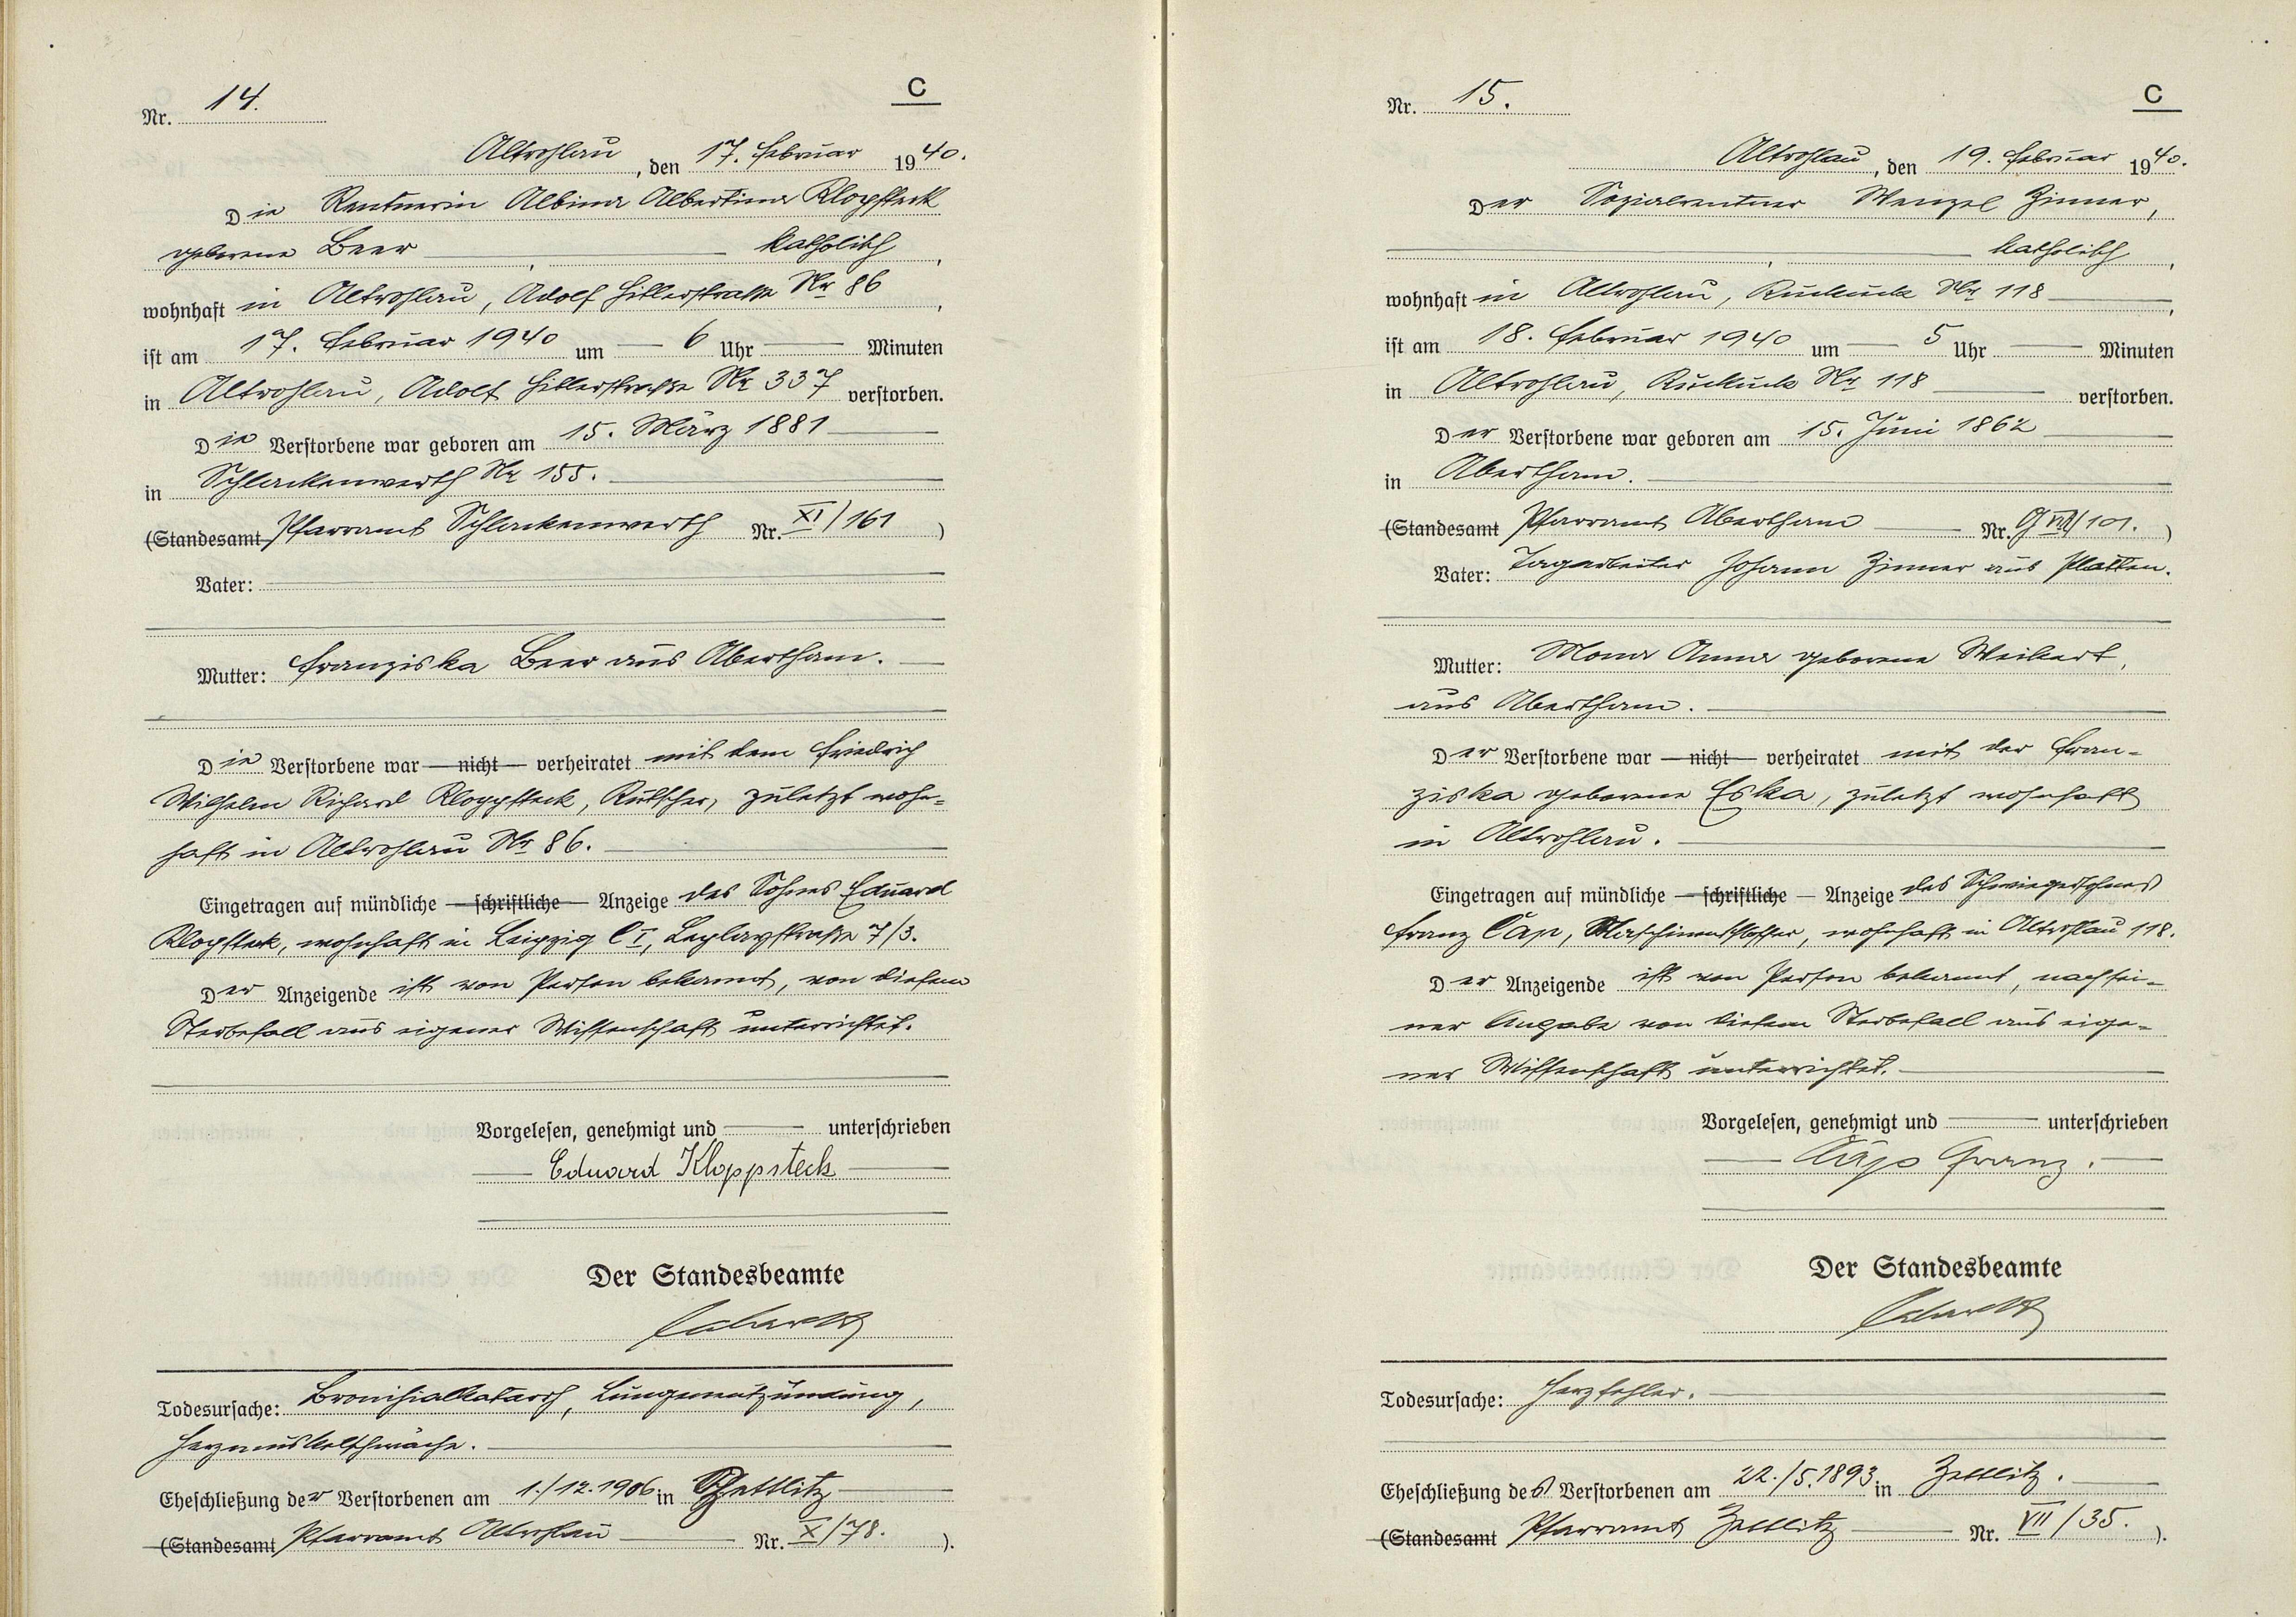 Nr. 14.
C
Altrohlau, den 17. Februar 1940.
Die Rentnerin Albina Albertina Kloppsteck
geborene Beer, katholisch,
wohnhaft in Altrohlau, Adolf Hitlerstraße Nr 86,
ist am 17. Februar 1940 um 6 Uhr Minuten
in Altrohlau, Adolf Hitlerstraße Nr 337 verstorben.
Die Verstorbene war geboren am 15. März 1881
in Schlackenwerth Nr 155.
(Standesamt Pfarramt Schlackenwerth Nr. XI/161)
Vater:
Mutter: Franziska Beer aus Abertham.
Die Verstorbene war — nicht — verheiratet mit dem Friedrich
Wilhelm Richard Kloppsteck, Kutscher, zuletzt wohn-
haft in Altrohlau Nr 86.
Eingetragen auf mündliche — schriftliche — Anzeige des Sohnes Eduard
Klopsteck, wohnhaft in Leipzig C I, Leplaystraße 7/3.
Der Anzeigende ist von Person bekannt, von diesem
Sterbefall aus eigener Wissenschaft unterrichtet.
Vorgelesen, genehmigt und unterschrieben
Eduard Kloppsteck
Der Standesbeamte
Todesursache: Bronchialkatarrh, Lungenentzündung,
Herzmuskelschwäche.
Eheschließung der Verstorbenen am 1./12.1906 in Zettlitz
(Standesamt Pfarramt Altrohlau Nr. X/78.).
Nr. 15.
C
Altrohlau, den 19. Februar 1940.
Der Sozialrentner Wenzel Zinner,
, katholisch,
wohnhaft in Altrohlau, Kuckuck Nr 118,
ist am 18. Februar 1940 um 5 Uhr Minuten
in Altrohlau, Kuckuck Nr 118 verstorben.
Der Verstorbene war geboren am 15. Juni 1862
in Abertham.
(Standesamt Pfarramt Abertham Nr. /101.)
Vater: Tagarbeiter Johann Zinner aus Platten.
Mutter: Anna geborene Weikert,
aus Abertham.
Der Verstorbene war — nicht — verheiratet mit der Fran-
ziska geborene Eska, zuletzt wohnhaft
in Altrohlau.
Eingetragen auf mündliche — schriftliche — Anzeige des Schwiegersohnes
Franz Čáp, Maschinenschlosser, wohnhaft in Altrohlau 118.
Der Anzeigende ist von Person bekannt, nach sei-
ner Angabe von diesem Sterbefall aus eige-
ner Wissenschaft unterrichtet.
Vorgelesen, genehmigt und unterschrieben
Čáp Franz.
Der Standesbeamte
Todesursache: Herzfehler.
Eheschließung des Verstorbenen am 22./5.1893 in Zettlitz.
(Standesamt Pfarramt Zettlitz Nr. VII/35.).